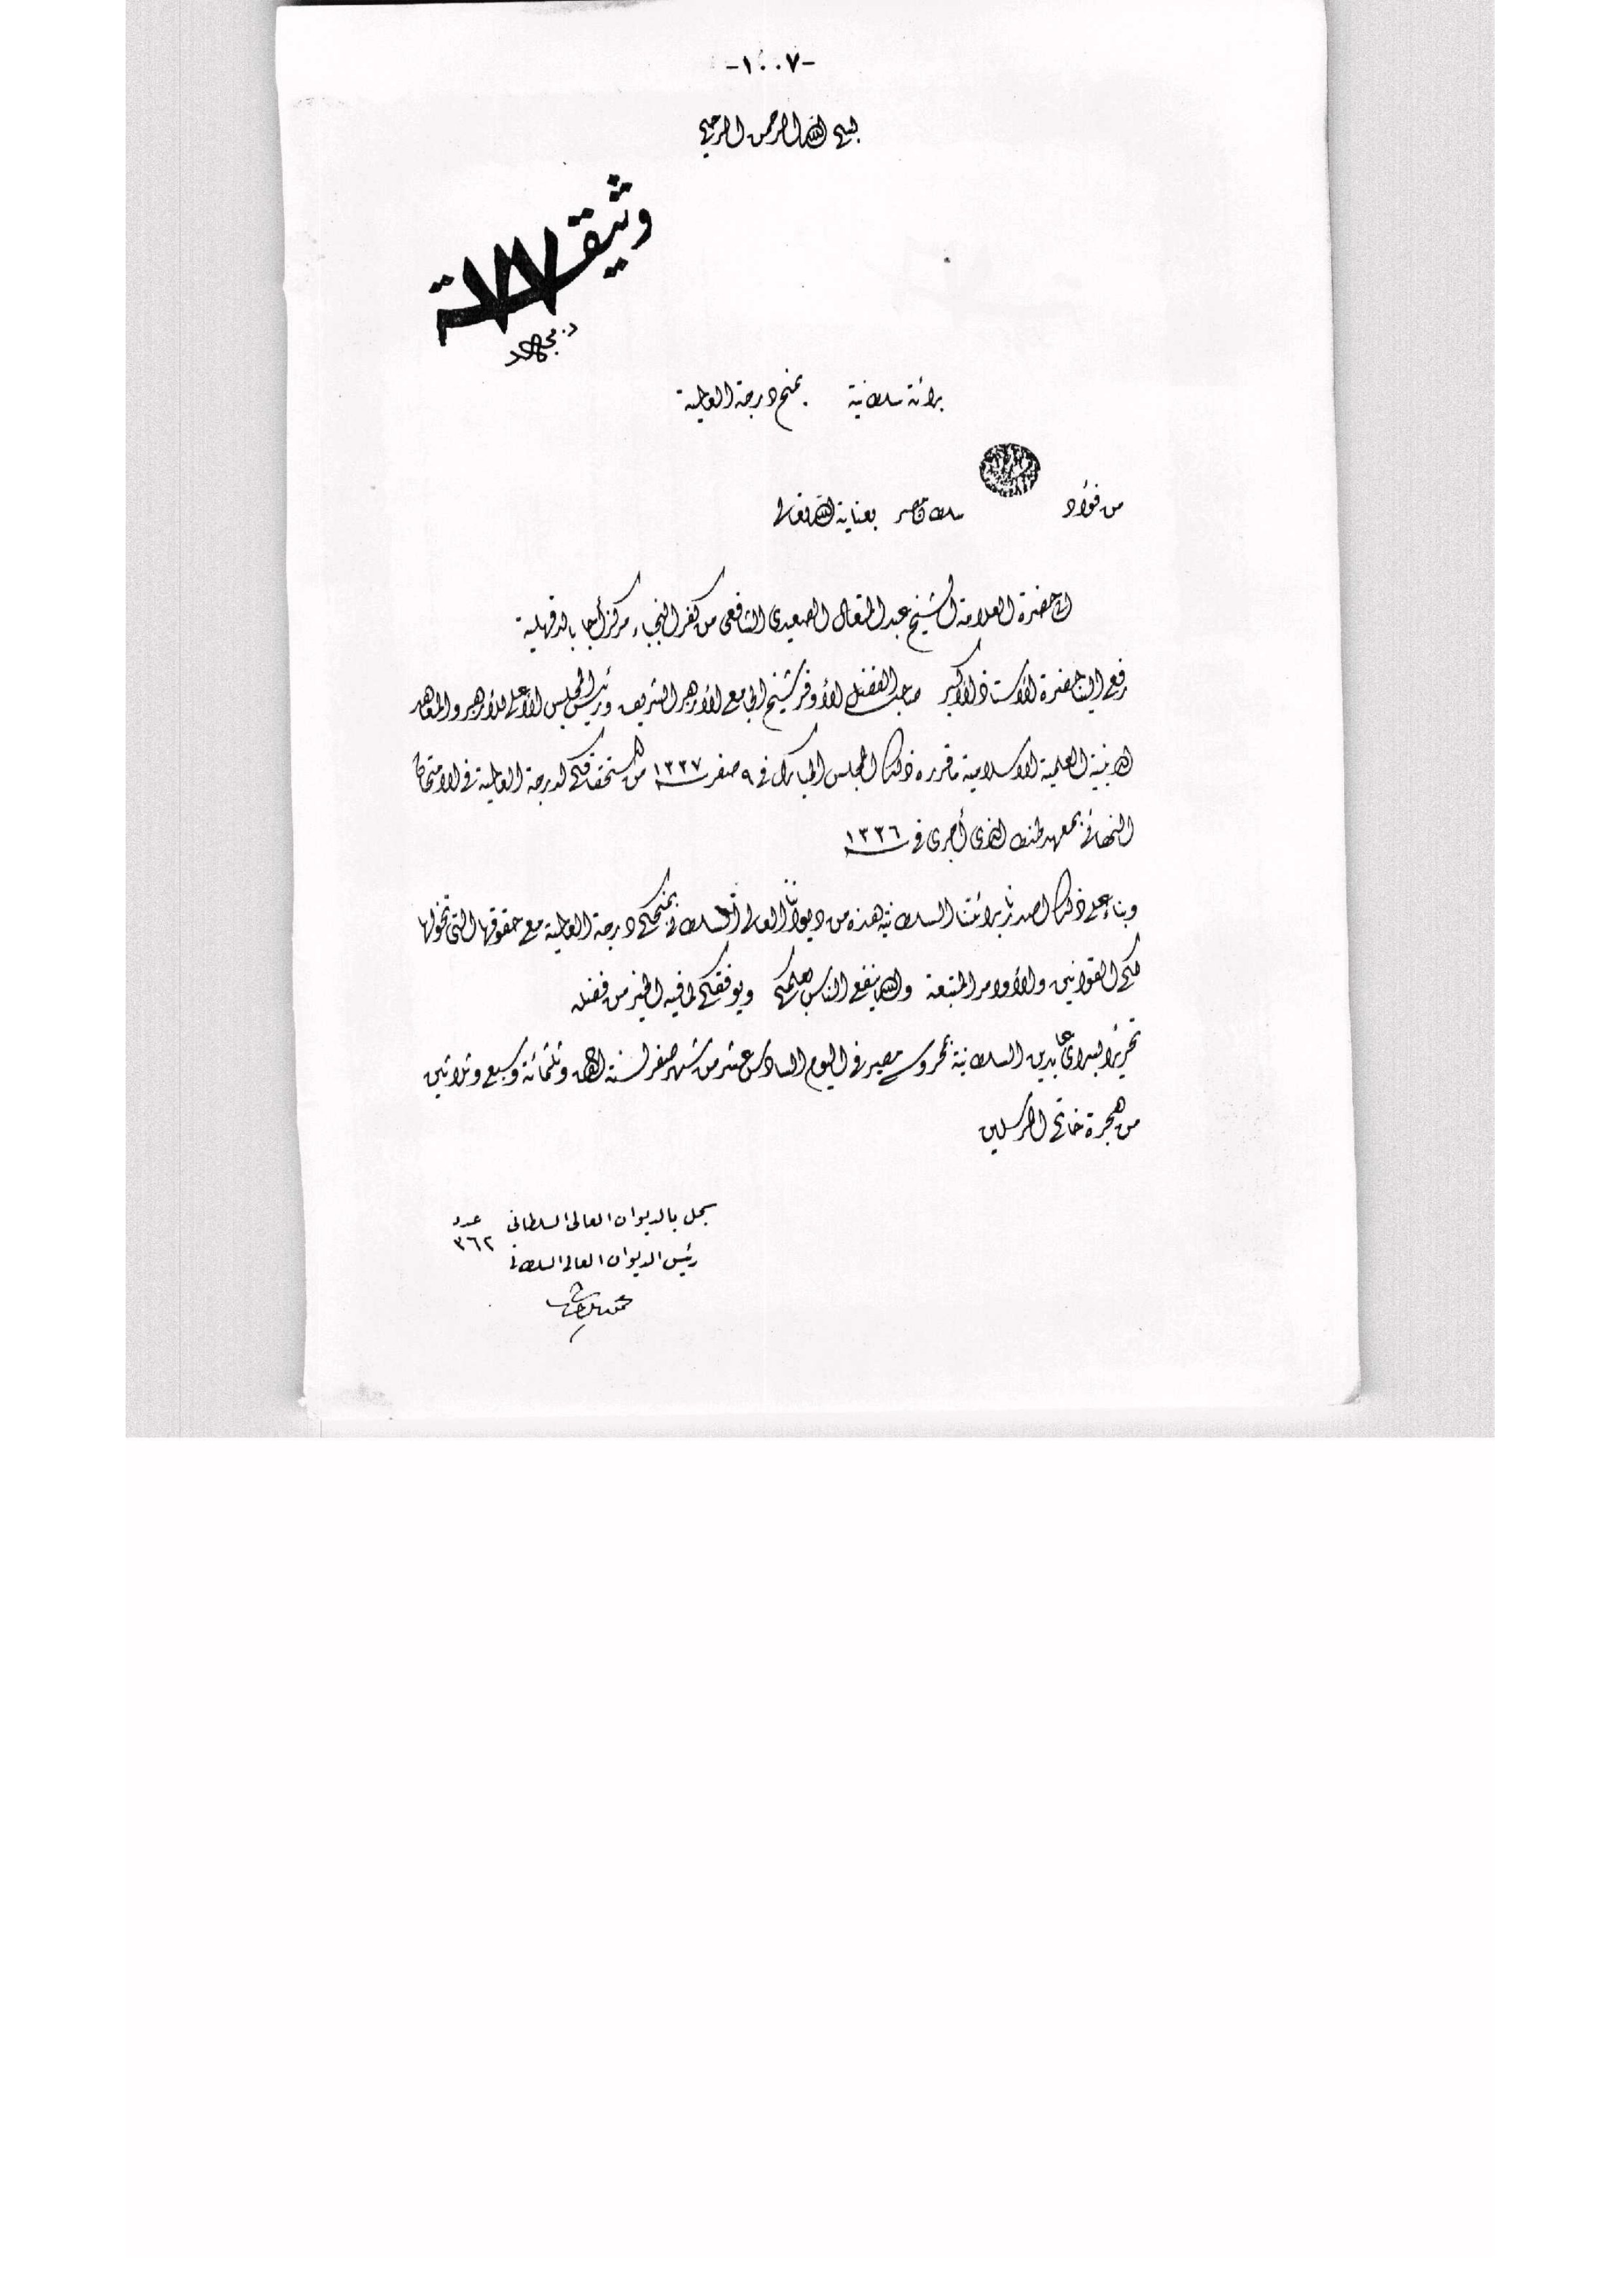 -١٠٠٧-
بسم الله الرحمن الرحيم
وثيقة
براءة سلطانية بمنح درجة العالمية
من فؤاد سلطان مصر بعناية الله تعالى
الى حضرة العلامة الشيخ عبد المتعال الصعيدى الشافعى من كفر النجباء مركز أجا بالدقهلية
رفع الينا حضرة الأستاذ الأكبر صاحب الفضل الأوفر شيخ الجامع الأزهر الشريف ورئيس المجلس الأعلى للأزهر والمعاهد
الدينية العلمية الاسلامية ماقرره ذلك المجلس المبارك فى ٩ صفر سنة ١٣٣٧ من استحقاقكم لدرجة العالمية فى الامتحان
النهائى بمعهد طنطا الذى أجرى فى سنة ١٣٣٦
وبناء على ذلك أصدرنا براءتنا السلطانية هذه من ديواننا العالى السلطانى بمنحكم درجة العالمية مع حقوقها التى تخولها
لكم القوانين والأوامر المتبعة والله ينفع الناس بعلمكم ويوفقكم لما فيه الخير من فضله
تحريرًا بسراى عابدين السلطانية بمحروسة مصر فى اليوم السادس عشر من شهر صفر لسنة الف وثلثمائة وسبع وثلاثين
من هجرة خاتم المرسلين
سجل بالديوان العالى السلطانى عدد ٣٦٢
رئيس الديوان العالى السلطانى